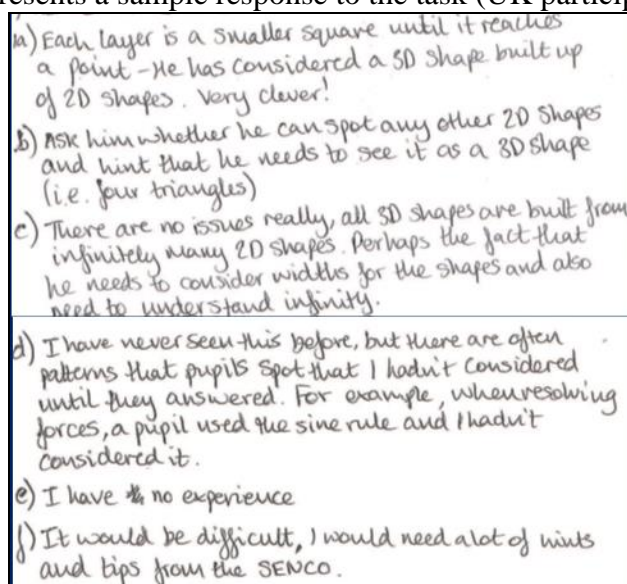 presents a sample response to the task (UK particip
a) Each layer is a smaller square until it reaches
a point - He has considered a 3D shape built up
of 2D shapes. Very clever!
b) Ask him whether he can spot any other 2D shapes
and hint that he needs to see it as a 3D shape
(i.e. four triangles)
c) There are no issues really, all 3D shapes are built from
infinitely many 2D shapes. Perhaps the fact that
he needs to consider widths for the shapes and also
need to understand infinity.
d) I have never seen this before, but there are often
patterns that pupils spot that I hadn't considered
until they answered. For example, when resolving
forces, a pupil used the sine rule and I hadn't
considered it.
e) I have no experience
f) It would be difficult, I would need a lot of hints
and tips from the SENCO.